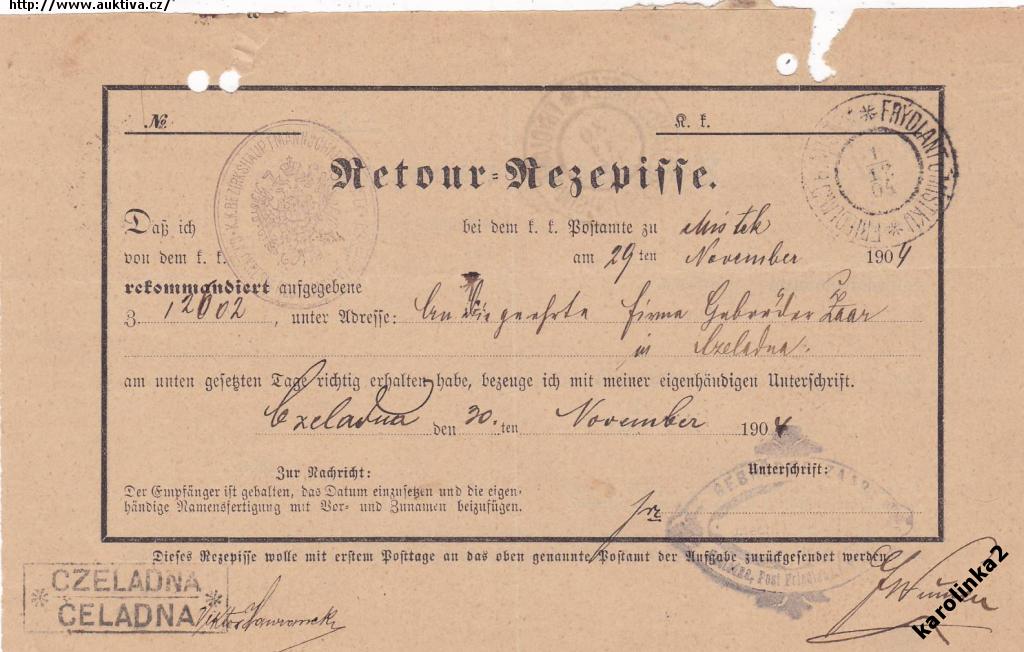 http://www.auktiva.cz/
№ K. k.
FRÝDLANT
1/12
04
Retour-Rezepisse.
Daß ich bei dem k. k. Postamte zu Mistek
von dem k. k. am 29ten November 1904
rekommandiert aufgegebene
Z. 12002, unter Adresse: An die geehrte Firma Gebrüder Zaar
in Czeladna.
am unten gesetzten Tage richtig erhalten habe, bezeuge ich mit meiner eigenhändigen Unterschrift.
Czeladna den 30.ten November 1904
Zur Nachricht: Unterschrift:
Der Empfänger ist gehalten, das Datum einzusetzen und die eigen-
händige Namensfertigung mit Vor- und Zunamen beizufügen.
Dieses Rezepisse wolle mit erstem Posttage an das oben genannte Postamt der Aufgabe zurückgesendet werden
CZELADNA
ČELADNA
Viktor
karolinka2